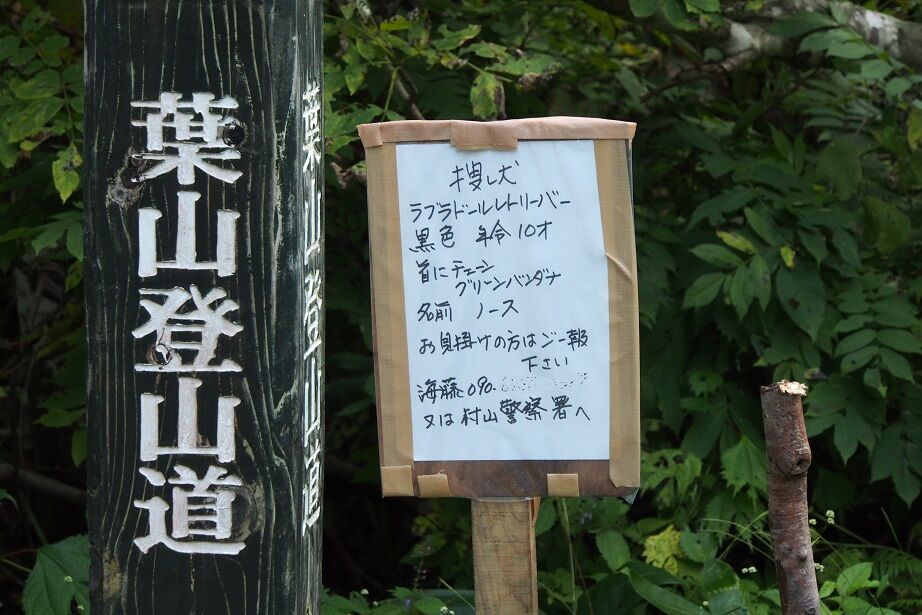 葉山登山道
葉山登山道
捜し犬
ラブラドールレトリーバー
黒色 年令 10才
首にチェーン
グリーンバンダナ
名前 ノース
お見掛けの方はご一報
下さい
海藤 090-
又は村山警察署へ